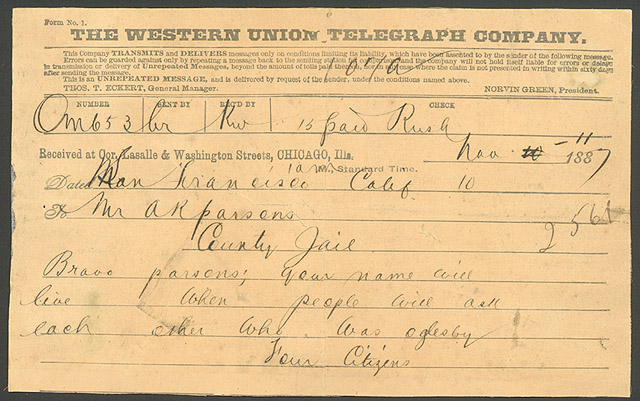 Form No. 1.
THE WESTERN UNION TELEGRAPH COMPANY.
This Company TRANSMITS and DELIVERS messages only on conditions limiting its liability, which have been assented to by the sender of the following message.
Errors can be guarded against only by repeating a message back to the sending station for comparison, and the company will not hold itself liable for errors or delays
in transmission or delivery of Unrepeated Messages, beyond the amount of tolls paid thereon, nor in any case where the claim is not presented in writing within sixty days
after sending the message.
This is an UNREPEATED MESSAGE, and is delivered by request of the sender, under the conditions named above.
THOS. T. ECKERT, General Manager. NORVIN GREEN, President.
NUMBER SENT BY REC'D BY CHECK
Om653 Kw 15 paid Rush
Received at Cor. Lasalle & Washington Streets, CHICAGO, Ills. Nov 10 -11 1887
Standard Time.
Dated San Francisco Calif 10
To Mr A R parsons
County Jail
Bravo parsons; your name will
live when people will ask
each other who was oglesby
Four Citizens